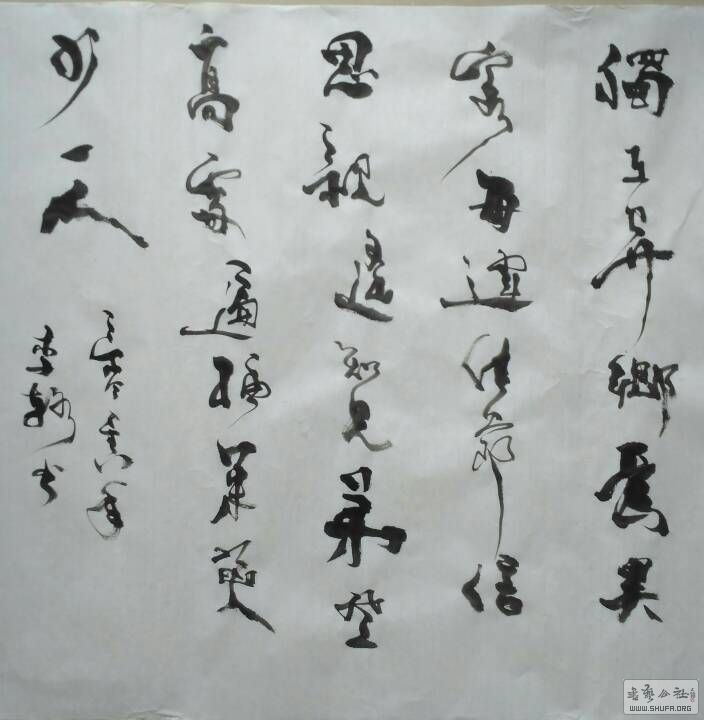 獨在异鄉為異
客每逢佳節倍
思親遙知兄弟登
高處遍插茱萸
少一人
書
書藝公社
WWW.SHUFA.ORG